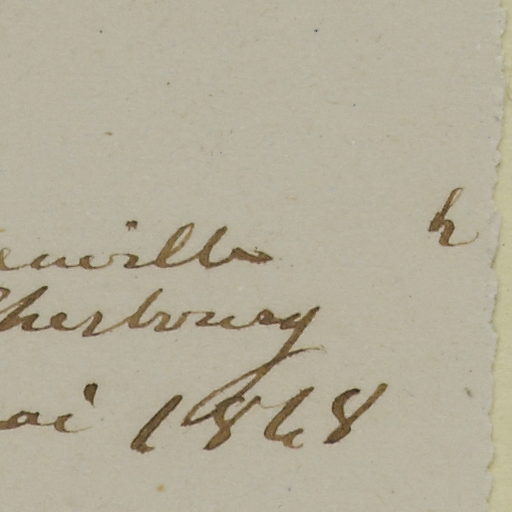 h
enville
Cherbourg
ai 1868